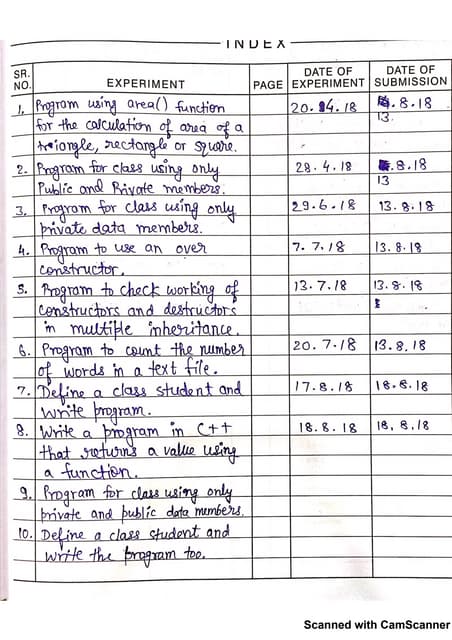 INDEX
SR. NO. EXPERIMENT PAGE DATE OF EXPERIMENT DATE OF SUBMISSION
1. Program using area() function 20.4.18 .8.18
for the calculation of area of a 13.
triangle, rectangle or square.
2. Program for class using only 28.4.18 .8.18
Public and Private members. 13
3. Program for class using only 29.6.18 13.8.18
private data members.
4. Program to use an over 7.7.18 13.8.18
constructor.
5. Program to check working of 13.7.18 13.8.18
constructors and destructors
in multiple inheritance.
6. Program to count the number 20.7.18 13.8.18
of words in a text file.
7. Define a class student and 17.8.18 18.8.18
write program.
8. Write a program in C++ 18.8.18 18.8.18
that returns a value using
a function.
9. Program for class using only
private and public data members.
10. Define a class student and
write the program too.
Scanned with CamScanner